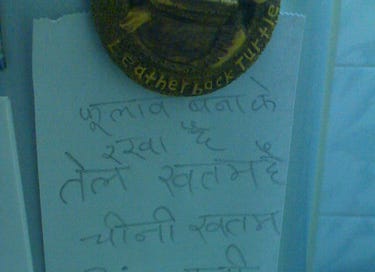 Leatherback Turtle
पुलाव बनाके
रखा है
तेल खतम है
चीनी खतम